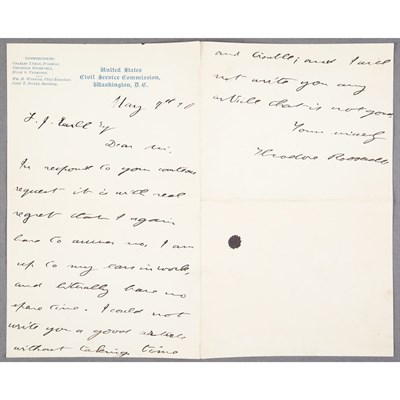 COMMISSIONERS:
CHARLES LYMAN, PRESIDENT.
THEODORE ROOSEVELT.
HUGH S. THOMPSON.
United States
Civil Service Commission,
Washington, D. C.
May 9th 90
Esq
Dear Sir:
In response to your courteous
request it is with real
regret that I again
have to answer no. I am
up to my ears in work,
and literally have no
spare time. I could not
write you a good article
without taking time
and trouble; and I will
not write you any
article that is not good.
Yours sincerely
Theodore Roosevelt